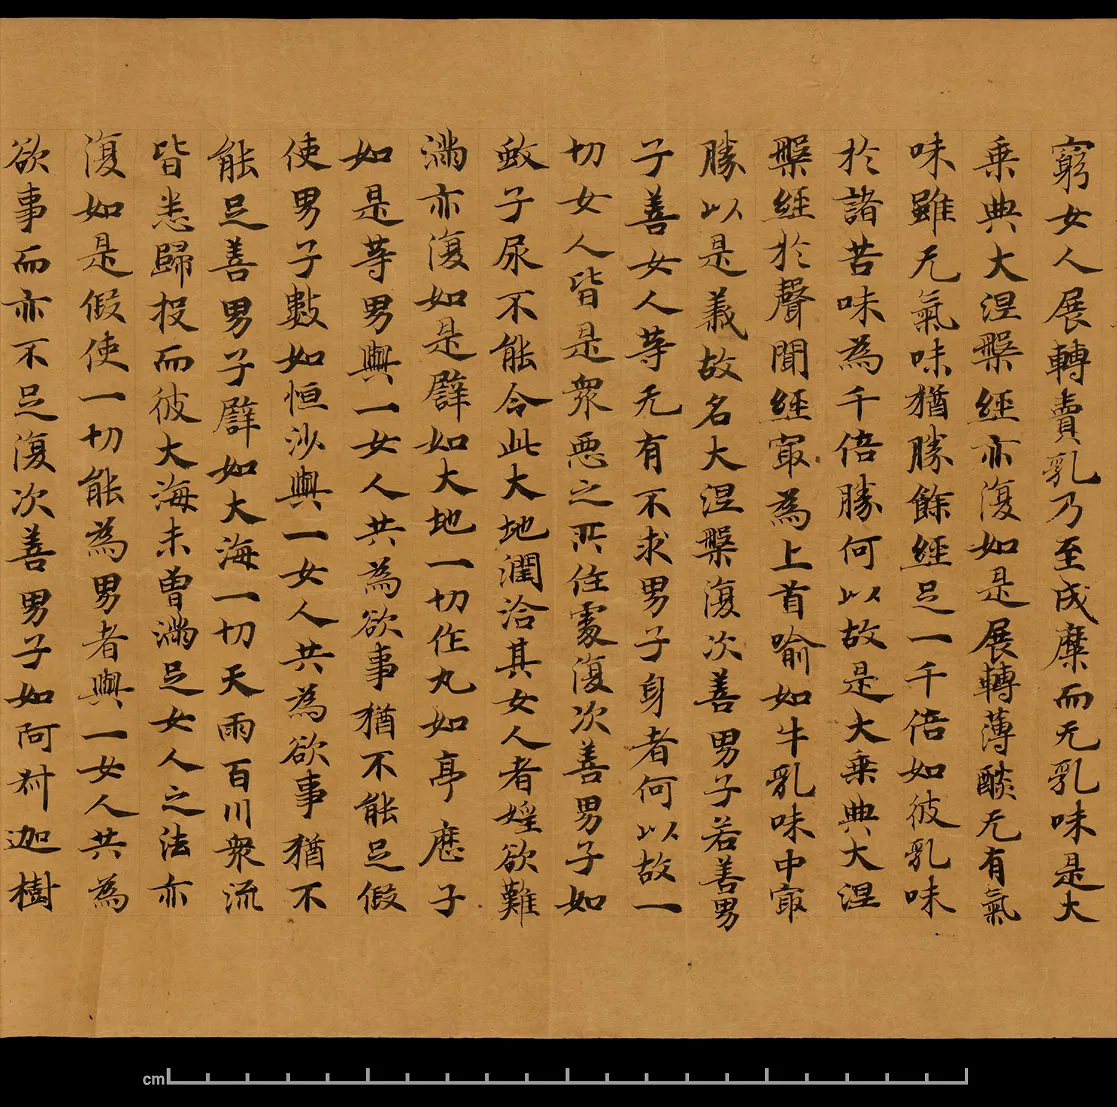 窮女人展轉賣乳乃至成糜而无乳味是大
乗典大涅槃經亦復如是展轉薄醶无有氣
味雖无氣味猶勝餘經足一千倍如彼乳味
於諸苦味為千倍勝何以故是大乗典大涅
槃經於聲聞經㝡為上首喻如牛乳味中㝡
勝以是義故名大涅槃復次善男子若善男
子善女人等无有不求男子身者何以故一
切女人皆是衆惡之所住處復次善男子如
蚊子尿不能令此大地潤洽其女人者婬欲難
滿亦復如是譬如大地一切作丸如亭歷子
如是等男與一女人共為欲事猶不能足假
使男子數如恒沙與一女人共為欲事猶不
能足善男子譬如大海一切天雨百川衆流
皆悉歸投而彼大海未曾滿足女人之法亦
復如是假使一切能為男者與一女人共為
欲事而亦不足復次善男子如阿叔迦樹
cm